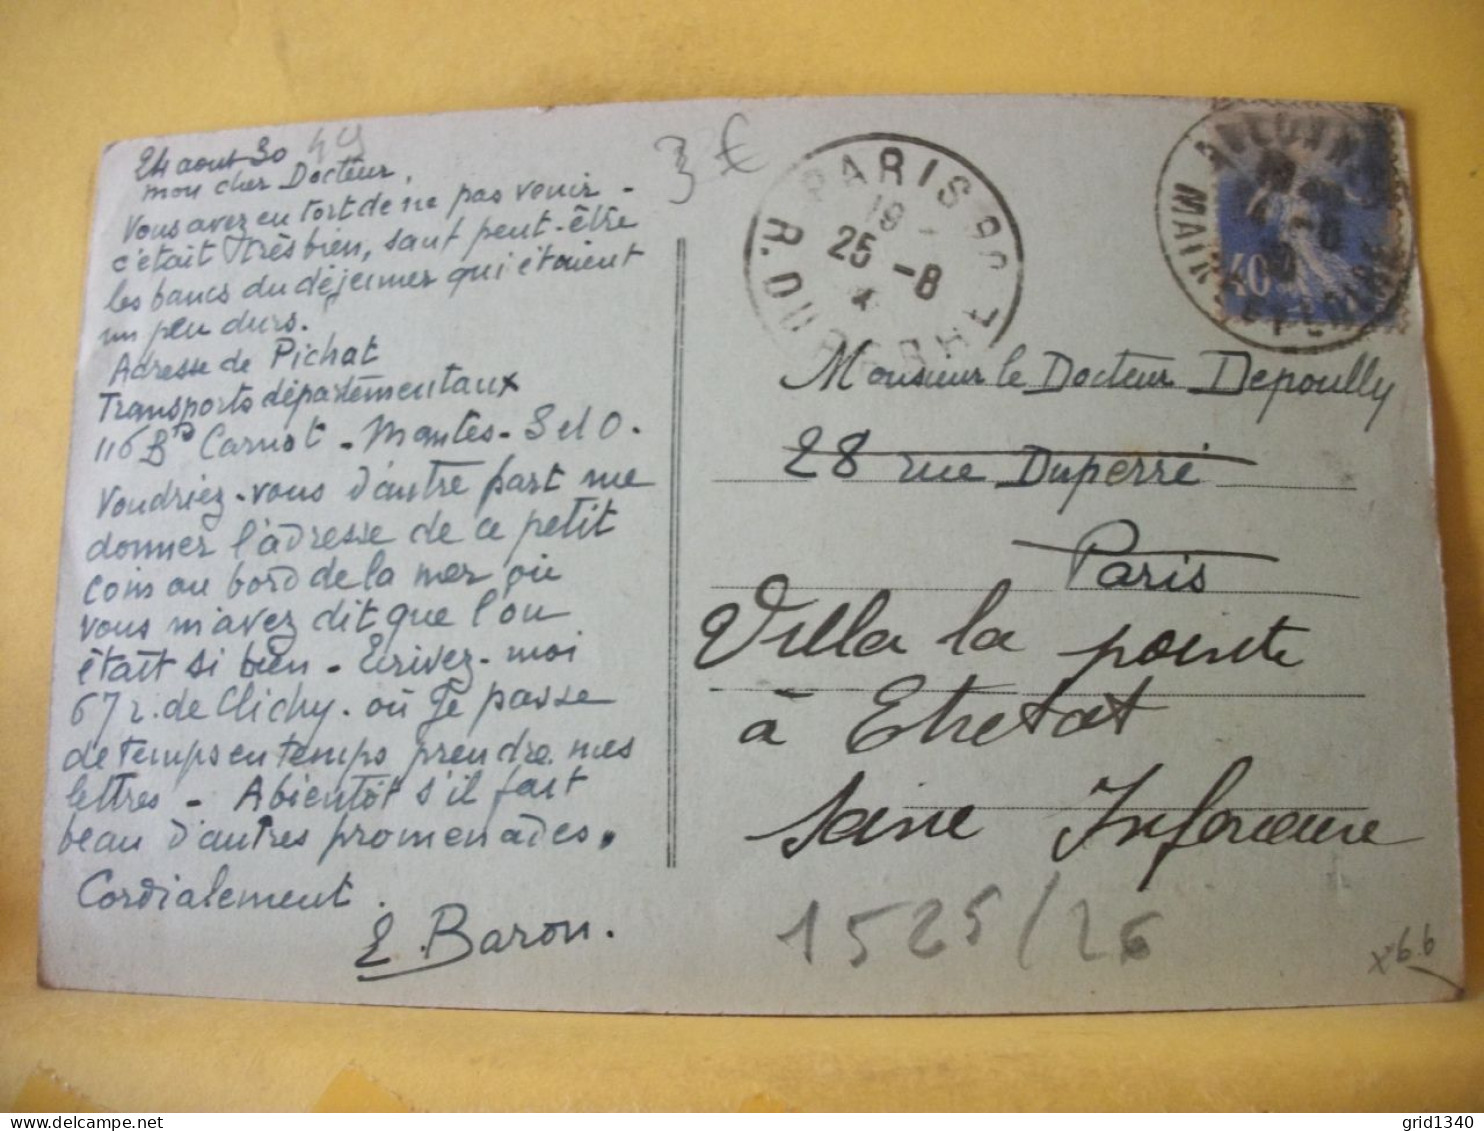 24 aout 30 49
mon cher Docteur,
Vous avez eu tort de ne pas venir -
c'était très bien, sauf peut-être
les bancs du déjeuner qui étaient
un peu durs.
Adresse de Pichat
Transports départementaux
116 Bd Carnot - Mantes - S et O.
Voudriez-vous d'autre part me
donner l'adresse de ce petit
coin au bord de la mer où
vous m'avez dit que l'on
était si bien - Ecrivez-moi
67 r. de Clichy - où je passe
de temps en temps prendre mes
lettres - A bientôt s'il fait
beau d'autres promenades.
Cordialement.
E. Baron.
3 €
PARIS 96
19
25 -8
R. DU
40
MAINE ET LOIRE
Monsieur le Docteur Depoully
28 rue Duperré
Paris
Villa la pointe
à Etretat
Seine Inférieure
1525/26
x6.6
grid1340